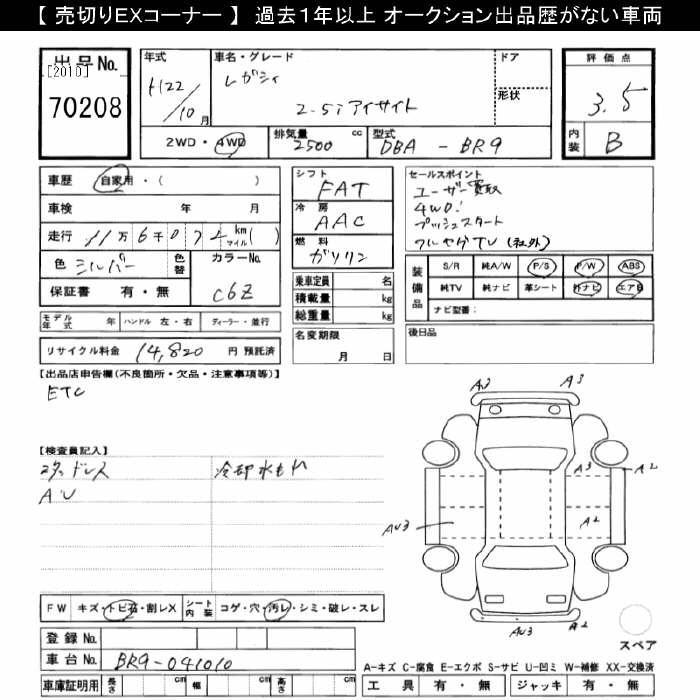 【 売切りEXコーナー 】 過去1年以上 オークション出品歴がない車両
出品No.
[2010]
70208
年式
H22/10月
車名・グレード
レガシィ
2.5i アイサイト
ドア
形状
2WD・4WD
排気量 2500 cc
型式 DBA - BR9
評価点
3.5
内装 B
車歴 自家用・( )
車検 年 月
走行 11万6千072 km マイル( )
色 シルバー
色替
カラーNo.
C6Z
保証書 有・無
モデル年式 年 ハンドル 左・右 ディーラー・並行
リサイクル料金 14,820 円 預託済
シフト
FAT
冷房
AAC
燃料
ガソリン
乗車定員 名
積載量 kg
総重量 kg
名変期限
月 日
セールスポイント
ユーザー買取
4WD!
プッシュスタート
フルセグTV (社外)
装備品
S/R 純A/W P/S P/W ABS
純TV 純ナビ 革シート 外ナビ エアB
ナビ型番:
後日品
【出品店申告欄(不良箇所・欠品・注意事項等)】
ETC
【検査員記入】
スタッドレス
冷却水もれ
AU
FW キズ・トビ石・割レX
シート内装 コゲ・穴・汚レ・シミ・破レ・スレ
登録No.
車台No. BR9-041010
車庫証明用 長さ cm 幅 cm 高さ cm
A2 A3
A3 A2
AU3 A2
AU3 A2
スペア
A-キズ C-腐食 E-エクボ S-サビ U-凹ミ W-補修 XX-交換済
工具 有・無 ジャッキ 有・無